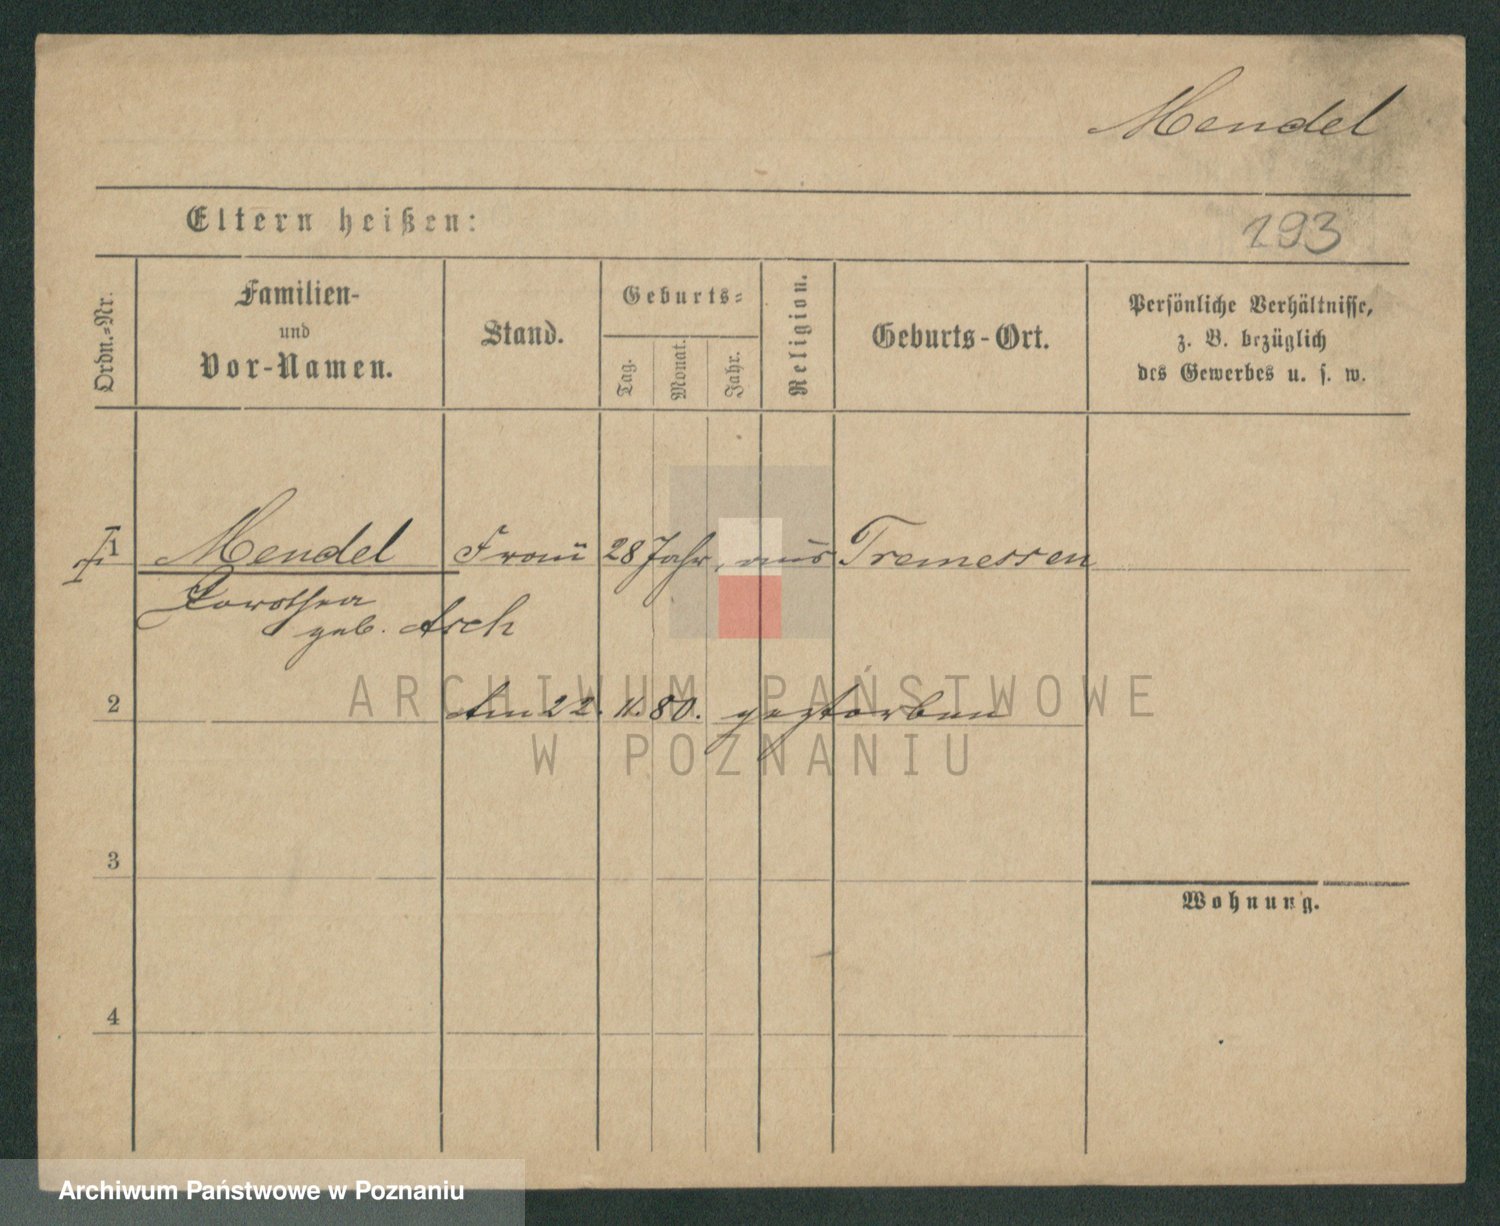 Mendel
Eltern heißen:
193
Ordn.-Nr.
Familien-
und
Vor-Namen.
Stand.
Geburts-
Tag.
Monat.
Jahr.
Religion.
Geburts-Ort.
Persönliche Verhältnisse,
z. B. bezüglich
des Gewerbes u. s. w.
1 Mendel Frau 28 Jahr, aus Tremessen
Dorothea
geb. Asch
2 Am 22. 11. 80. gestorben
ARCHIWUM PAŃSTWOWE
W POZNANIU
3
Wohnung.
4
Archiwum Państwowe w Poznaniu